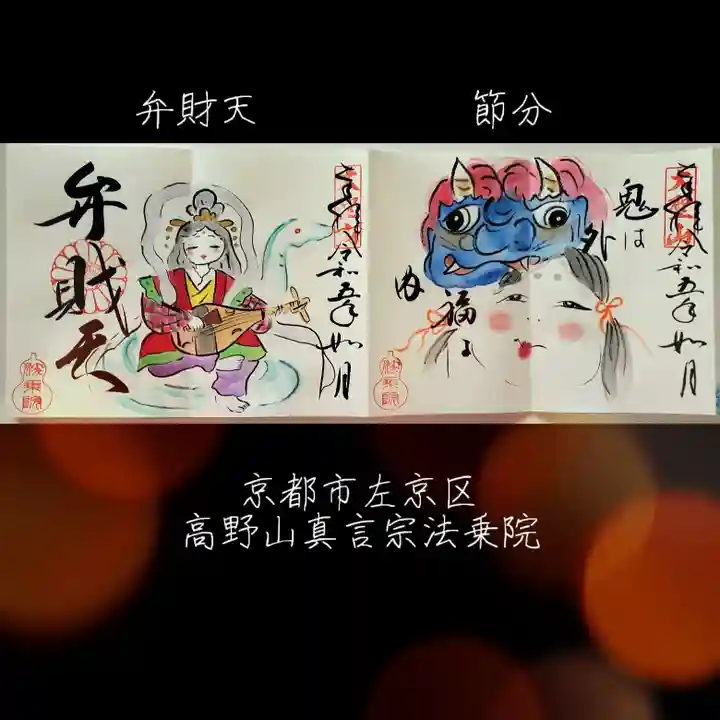 弁財天
節分
弁財天
令和五年如月
鬼は
外
福は
内
令和五年如月
京都市左京区
高野山真言宗法乗院